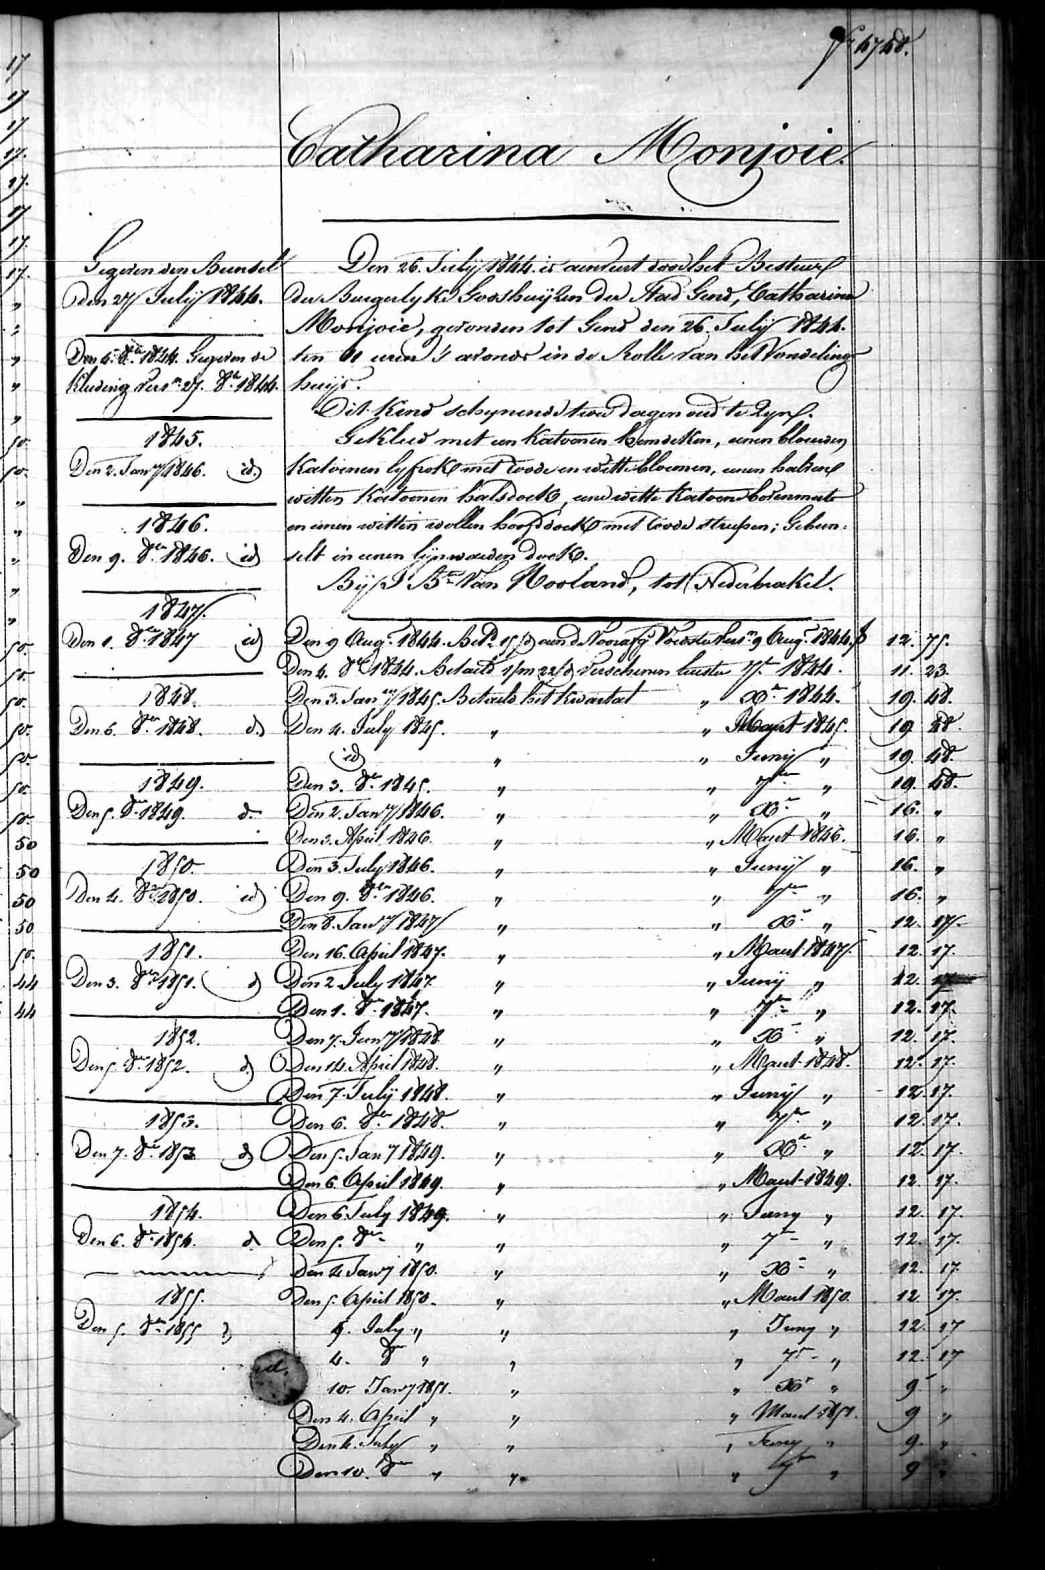 Catharina Monjoie.
Gegeven den Bunsel
den 27 Julij 1844.
Den 4. 8bre 1844. Gegeven de
Kleeding vers. 27. 8bre 1844.
1845.
Den 2. Janry 1846. id
1846.
Den 9. 8bre 1846. id
1847.
Den 1. 8bre 1847 id
1848.
Den 6. 8bre 1848. id
1849.
Den 5. 8bre 1849. id
1850.
Den 4. 8bre 1850. id
1851.
Den 3. 8bre 1851. id
1852.
Den 5. 8bre 1852. id
1853.
Den 7. 8bre 1853 id
1854.
Den 6. 8bre 1854. id
1855.
Den 5. 8bre 1855 id
id.
Den 26. Julij 1844. is aenveert door het Bestuer
der Burgerlyke Godshuijzen der Stad Gend, Catharina
Monjoie, gevonden tot Gend den 26. Julij 1844.
ten uren 's avonds in de Rolle van het Vondeling
huijs.
Dit Kind schynende twee dagen oud te Zyn.
Gekleed met een Katoenen hemdeken, eenen blauwen
Katoenen lyfrok met roode en witte bloemen, eenen
witten Katoenen halsdoek, eene witte Katoene bovenmuts
en eenen witten wollen hoofddoek met roode streepen; Gebun-
selt in eenen lynwaeden doek.
Bij Bte Van Nooland, tot Nederbrakel.
Den 9 Aug. 1844. Bet. aen d. Voorsz. 9 Aug. 1844. f 12. 75.
Den 4. 8bre 1844. Betaeld verschenen leste 7bre 1844. 11. 23.
Den 3. Janry 1845. Betaeld het Kwartael " Xbre 1844. 19. 48.
Den 4. July 1845. " " Maart 1845. 19 48.
id " " Junij " 19. 48.
Den 3. 8bre 1845. " " 7bre " 19. 48.
Den 2. Janry 1846. " " Xbre " 16. "
Den 3. April 1846. " " Maart 1846. 16. "
Den 3. July 1846. " " Junij " 16. "
Den 9. 8bre 1846. " " 7bre " 16. "
Den 8. Janry 1847 " " Xbre " 12. 17.
Den 16. April 1847. " " Maart 1847. 12. 17.
Den 2 July 1847. " " Junij " 12. 17
Den 1. 8bre 1847. " " 7bre " 12. 17.
Den 7. Janry 1848 " " Xbre " 12. 17.
Den 14. April 1848. " " Maart 1848. 12. 17.
Den 7. Julij 1848. " " Junij " 12. 17.
Den 6. 8bre 1848. " " 7bre " 12. 17.
Den 5. Janry 1849. " " Xbre " 12. 17.
Den 6. April 1849. " " Maart 1849. 12. 17.
Den 6. July 1849. " " Juny " 12. 17.
Den 5. 8bre " " " 7bre " 12. 17.
Den 4 Janry 1850. " " Xbre " 12. 17.
Den 5. April 1850. " " Maart 1850. 12. 17.
5. July " " " Juny " 12. 17
4. 8bre " " " 7bre " 12. 17
10. Janry 1851. " " Xbre " 9 "
Den 4. April " " " Maart 1851. 9 "
Den 4. July " " " Juny " 9. "
Den 10. 8bre " " " 7bre " 9 "